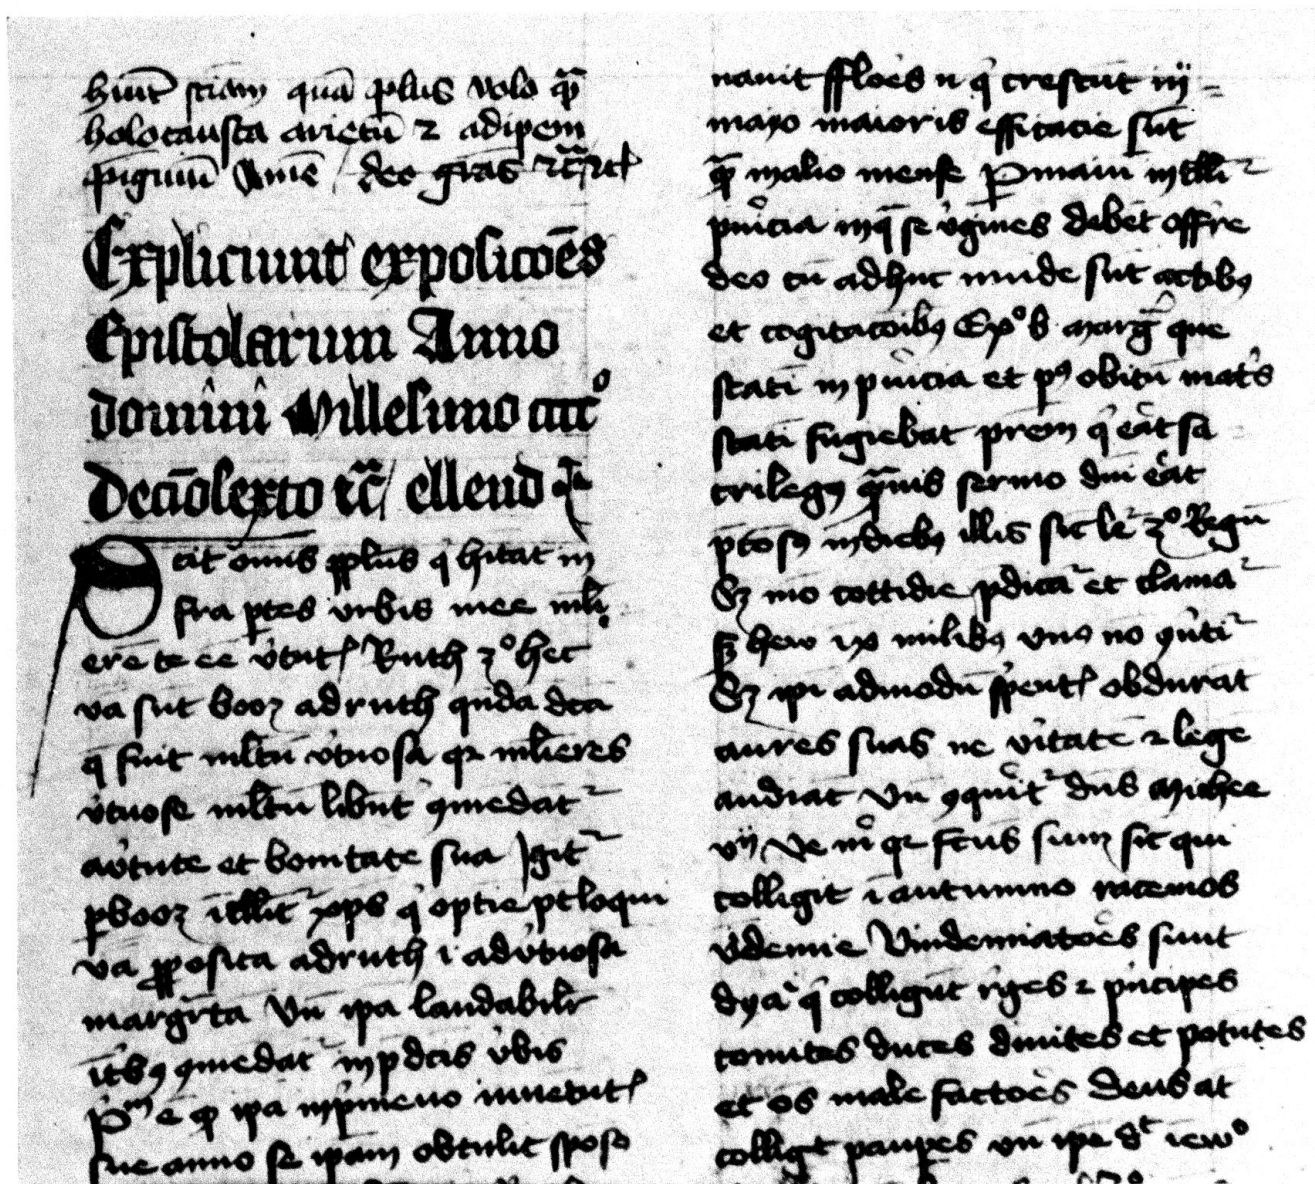 holocausta arietū ⁊ adipem
pīguiū Amē / deo grās
Expliciunt exposicōēs
Epistolarum Anno
domini Millesimo cccc°
Decīosexto ⁊c̄ / ellend
cit omīs ppl̄us q̇ hitat in
fra ptes urbis mee
erē te eē v̓tut Ruth 3° hec
v̄a sūt booz ad ruth q̄nda dc̄a
q̄ fuit ml̄tū v̓tuosa qr ml̄ieres
v̓tuose ml̄tū libn̄t ꝯmēdāt
a v̓tute et bonitate sua Igit
p booz ītllit xp̄s q̇
v̄a pposita ad ruth i ad v̓tuosā
margr̄tā Vn̄ ip̄a laudabilr
ꝯmēdat in p̄dc̄is v̓bis
Pm̄ ē qꝫ ip̄a in p̓meuo iuuētut
sue anno se ip̄am obtulit spōso
nauit fflōēs n̄ q̇ crescūt in
mayo maioris efficacie sūt
qm̄ malio mense P maiū intlli
pu̓icia in q̄ se v̓gines debēt offr̄e
deo cū adhuc mūde sūt actibꝰ
et cogitacōibꝰ Exº b̄ marḡ que
statī in pu̓icia et pꝰ obitū mat̓s
statī fugiebat pr̄em q̇ eāt sa
crilegꝰ q̄muis sermo dn̄i eāt
p̄tōsꝰ in diebꝰ illis sic le 3° Regū
Sꝫ mō cottidie p̄dica et clama
sꝫ hew ix milibꝰ vnꝰ nō
Sꝫ ip̄i ad modū s̓pent obdurāt
aures suas ne v̓itatē ⁊ lege
audiāt Vn̄ ꝯqu̓it dn̄s Michee
vij Ve m̓ qr fc̄us sum sic qui
colligit ī autumno racemos
v̓idemie Vindemiatōēs sunt
dyā q̇ colligūt r̓ges ⁊ p̓ncipes
comites duces diuites et potētes
et ōs male factōēs Deus at
colligit paup̄es vn̄ ip̄e d̄t